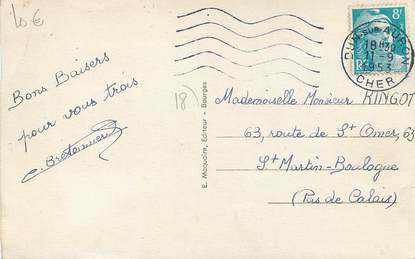 10 €
Bons Baisers
pour vous trois
18)
E. Maquaire, Editeur - Bourges
8F
DUN SUR AURON
18H30
11-9
1953
CHER
Mademoiselle Monsieur RINGOT
63, route de St Omer, 63
St Martin-Boulogne
(Pas de Calais)